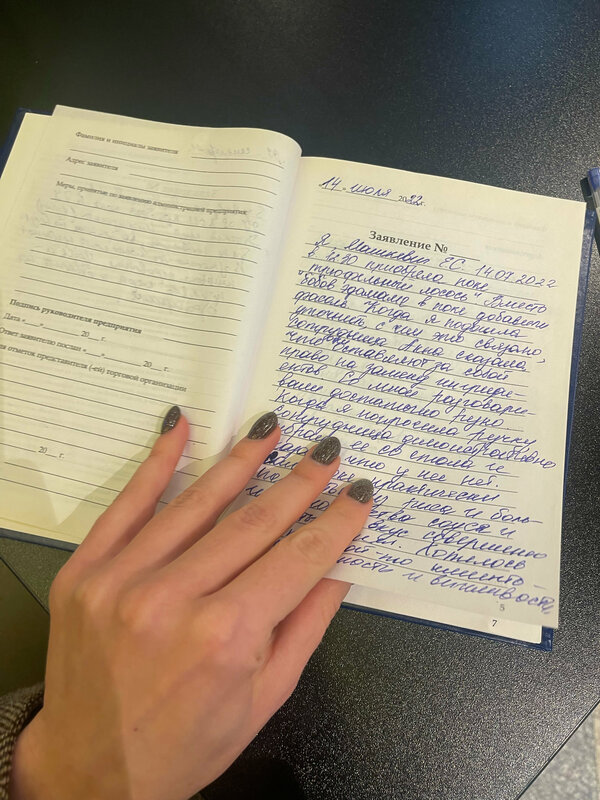 Фамилия и инициалы заявителя
Адрес заявителя
Меры, принятые по заявлению администрацией предприятия
Подпись руководителя предприятия
Дата «___»________ 20 __ г.
Ответ заявителю послан «___»________ 20 __ г.
отметок представителя (-ей) торговой организации
20 __ г.
14 июля 2022 г.
Заявление №
Я Машкевич Е.С. 14.07.2022
в 12:30 приобрела поке
"трюфельный лосось". Вместо
бобов эдамамэ в поке добавили
фасоль. Когда я подошла
уточнить с чем это связано,
сотрудница Анна сказала,
что оставляют за собой
право на замену ингреди-
ентов. Со мной разговари-
вали достаточно грубо.
Когда я попросила ручку
сотрудница демонстративно
ее со стола и
что у нее нет.
практически
риса и боль-
соуса и
вкус совершенно
Хотелось
что клиенто
ности и вежливости
5
7